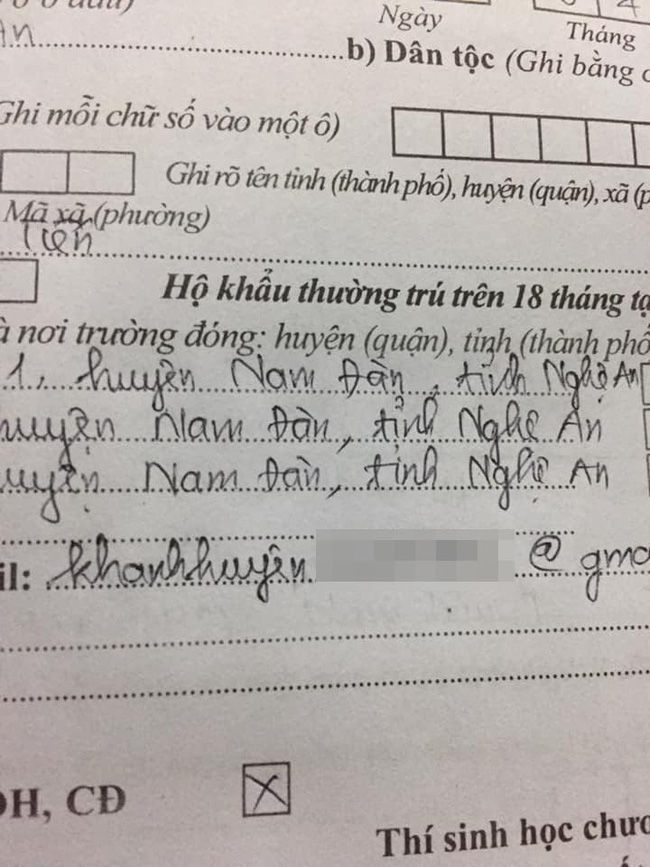 Ngày
Tháng
An
b) Dân tộc (Ghi bằng
Ghi mỗi chữ số vào một ô)
Ghi rõ tên tỉnh (thành phố), huyện (quận), xã (p
Mã xã (phường)
Tiến
Hộ khẩu thường trú trên 18 tháng tạ
à nơi trường đóng: huyện (quận), tỉnh (thành phố
1, huyện Nam Đàn, tỉnh Nghệ An
huyện Nam Đàn, tỉnh Nghệ An
huyện Nam Đàn, tỉnh Nghệ An
il: khanhhuyền @ gma
ĐH, CĐ X
Thí sinh học chươ